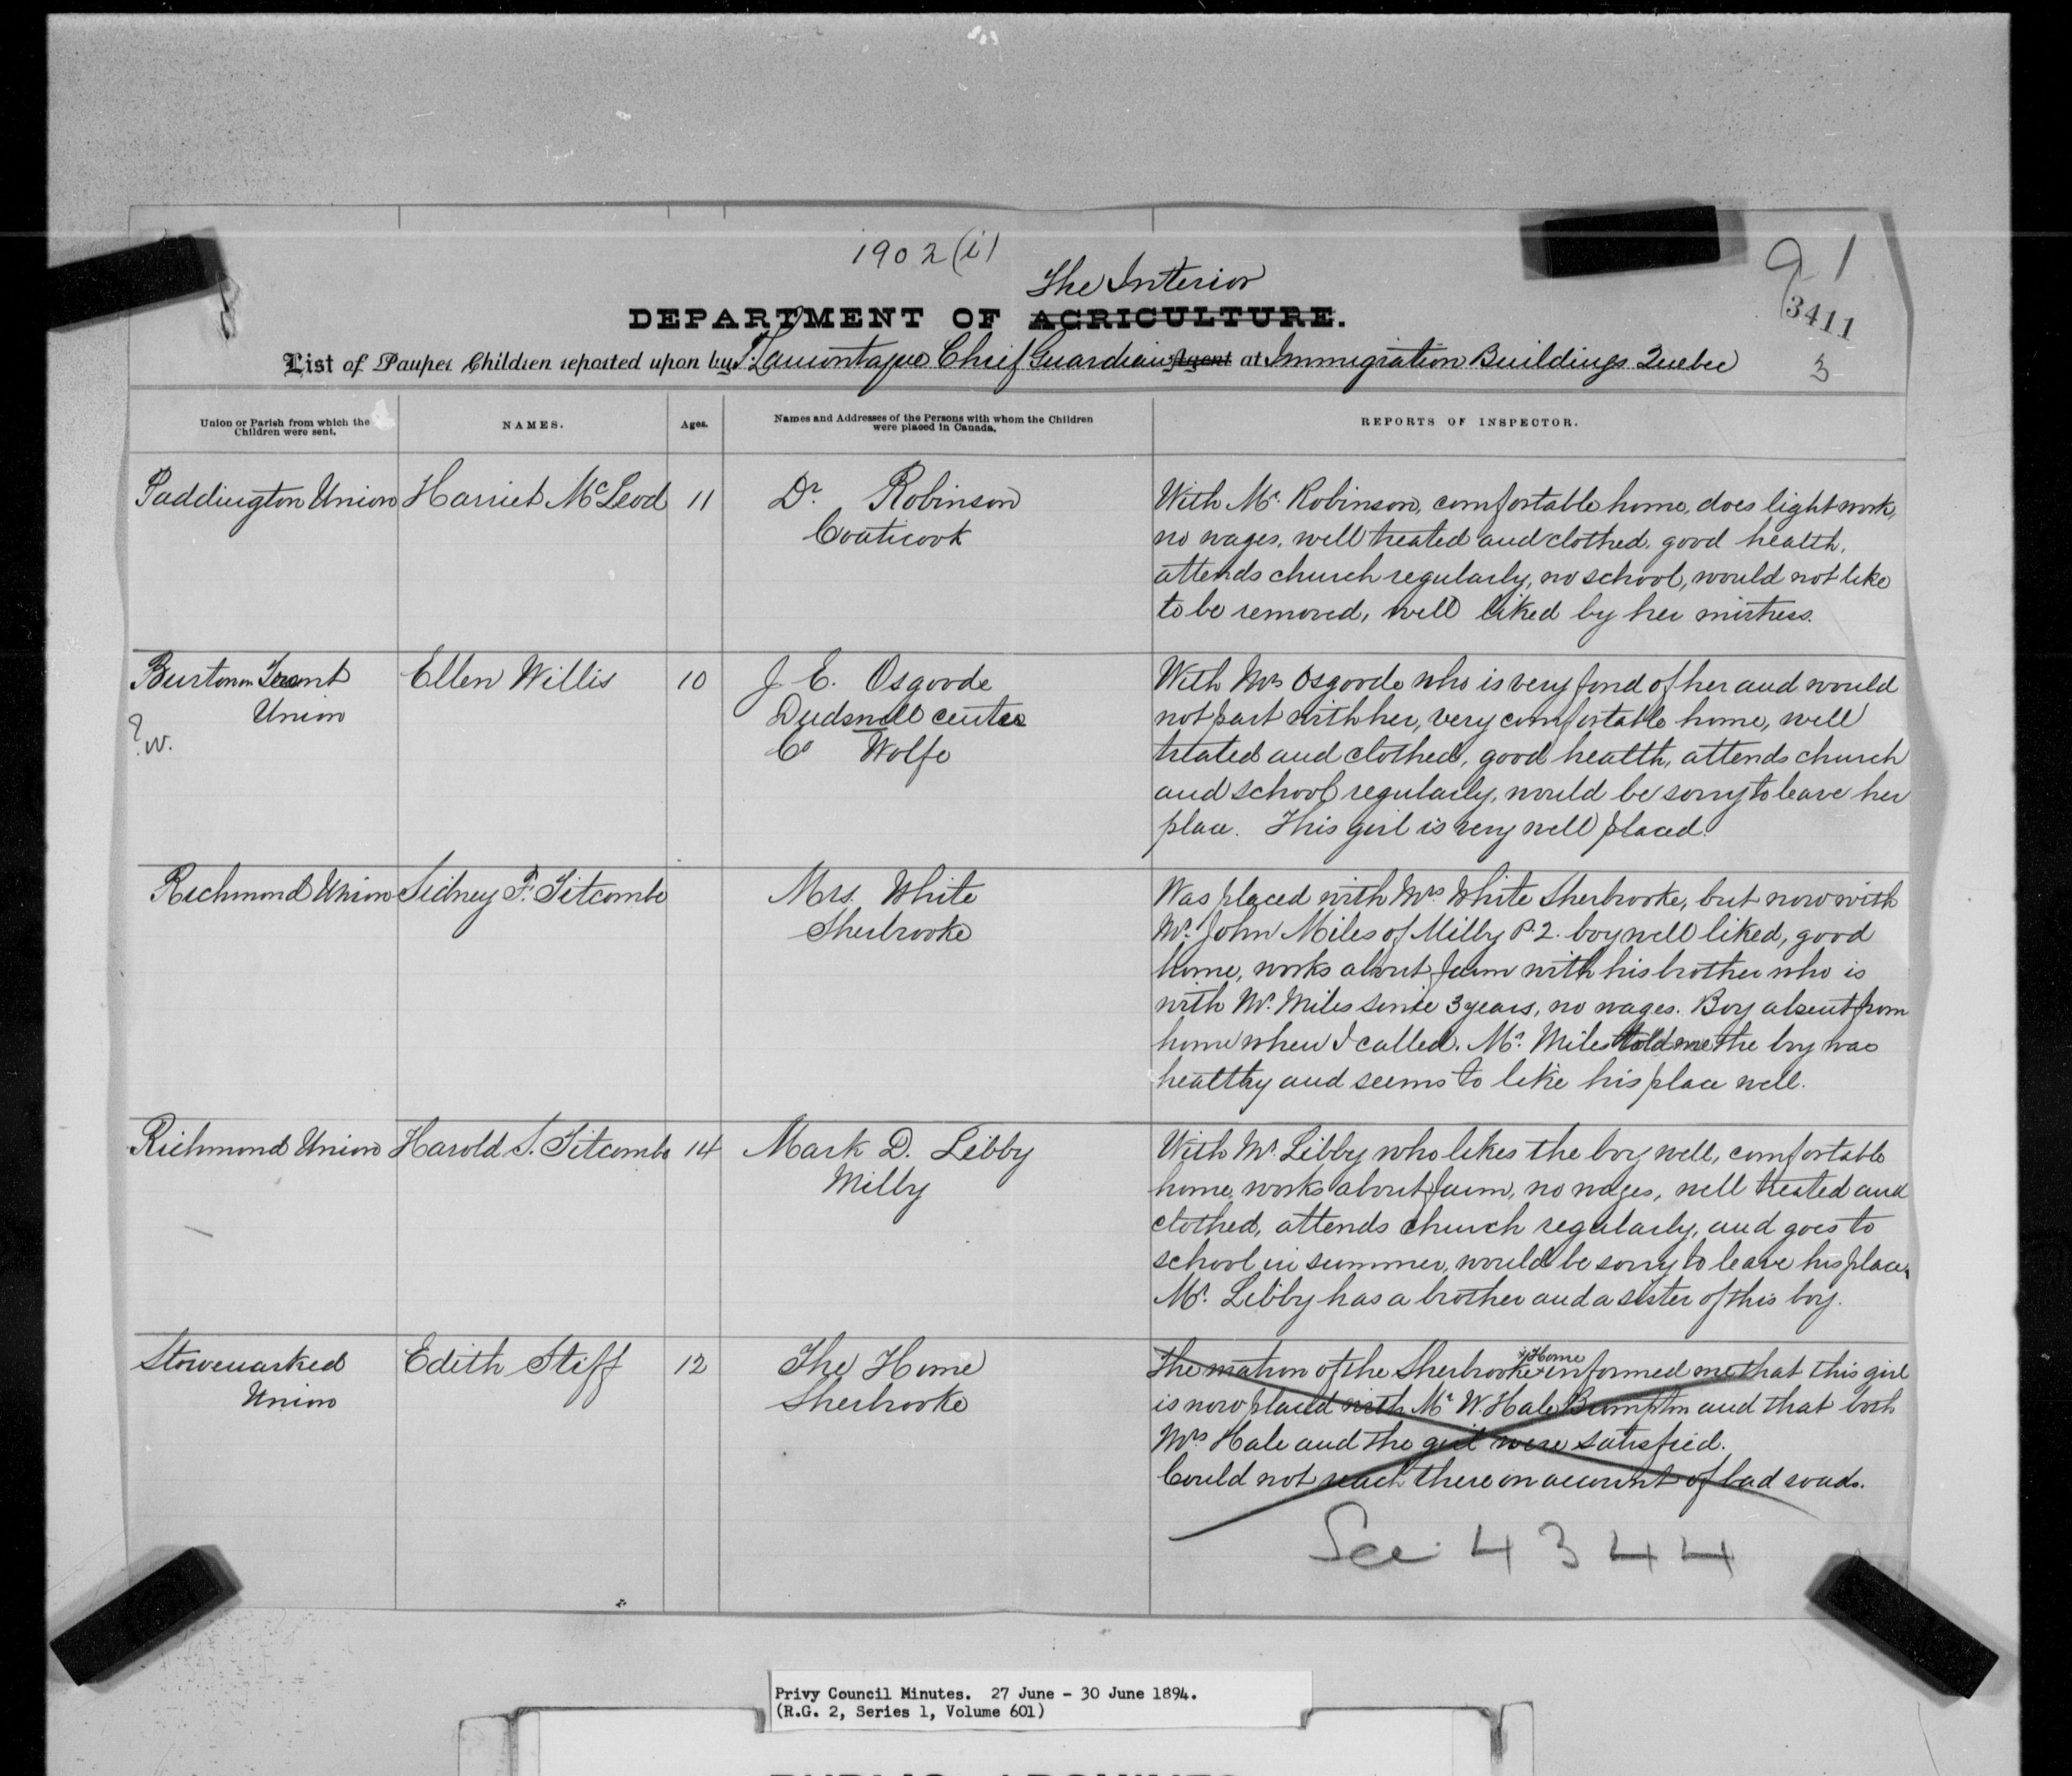 1902 (i)
91
The Interior
DEPARTMENT OF AGRICULTURE.
3411
3
List of Pauper Children reported upon by J. Lamontagne Chief Guardian Agent at Immigration Buildings Quebec
Union or Parish from which the Children were sent.
NAMES.
Ages.
Names and Addresses of the Persons with whom the Children were placed in Canada.
REPORTS OF INSPECTOR.
Paddington Union
Harriet McLeod
11
Dr. Robinson
Coaticook
With Mr. Robinson, comfortable home, does light work,
no wages, well treated and clothed, good health,
attends church regularly, no school, would not like
to be removed, well liked by her mistress.
Burton on Trent
Union
? W.
Ellen Willis
10
J. E. Osgoode
Dudswell center
Co Wolfe
With Mrs Osgoode who is very fond of her and would
not part with her, very comfortable home, well
treated and clothed, good health, attends church
and school regularly, would be sorry to leave her
place. This girl is very well placed.
Richmond Union
Sidney F. Titcombe
Mrs. White
Sherbrooke
Was placed with Mrs White Sherbrooke, but now with
Mr. John Miles of Milby P.2. boy well liked, good
home, works about farm with his brother who is
with Mr. Miles since 3 years, no wages. Boy absent from
home when I called. Mr. Miles told me the boy was
healthy and seems to like his place well.
Richmond Union
Harold S. Titcombe
14
Mark D. Libby
Milby
With Mr. Libby who likes the boy well, comfortable
home, works about farm, no wages, well treated and
clothed, attends church regularly, and goes to
school in summer, would be sorry to leave his place,
Mr. Libby has a brother and a sister of this boy.
Stowmarked
Union
Edith Stiff
12
The Home
Sherbrooke
Home
The matron of the Sherbrooke informed me that this girl
is now placed with Mr W. Hale Brompton and that both
Mrs Hale and the girl were satisfied.
Could not reach there on account of bad roads.
See 4344
Privy Council Minutes. 27 June - 30 June 1894.
(R.G. 2, Series 1, Volume 601)